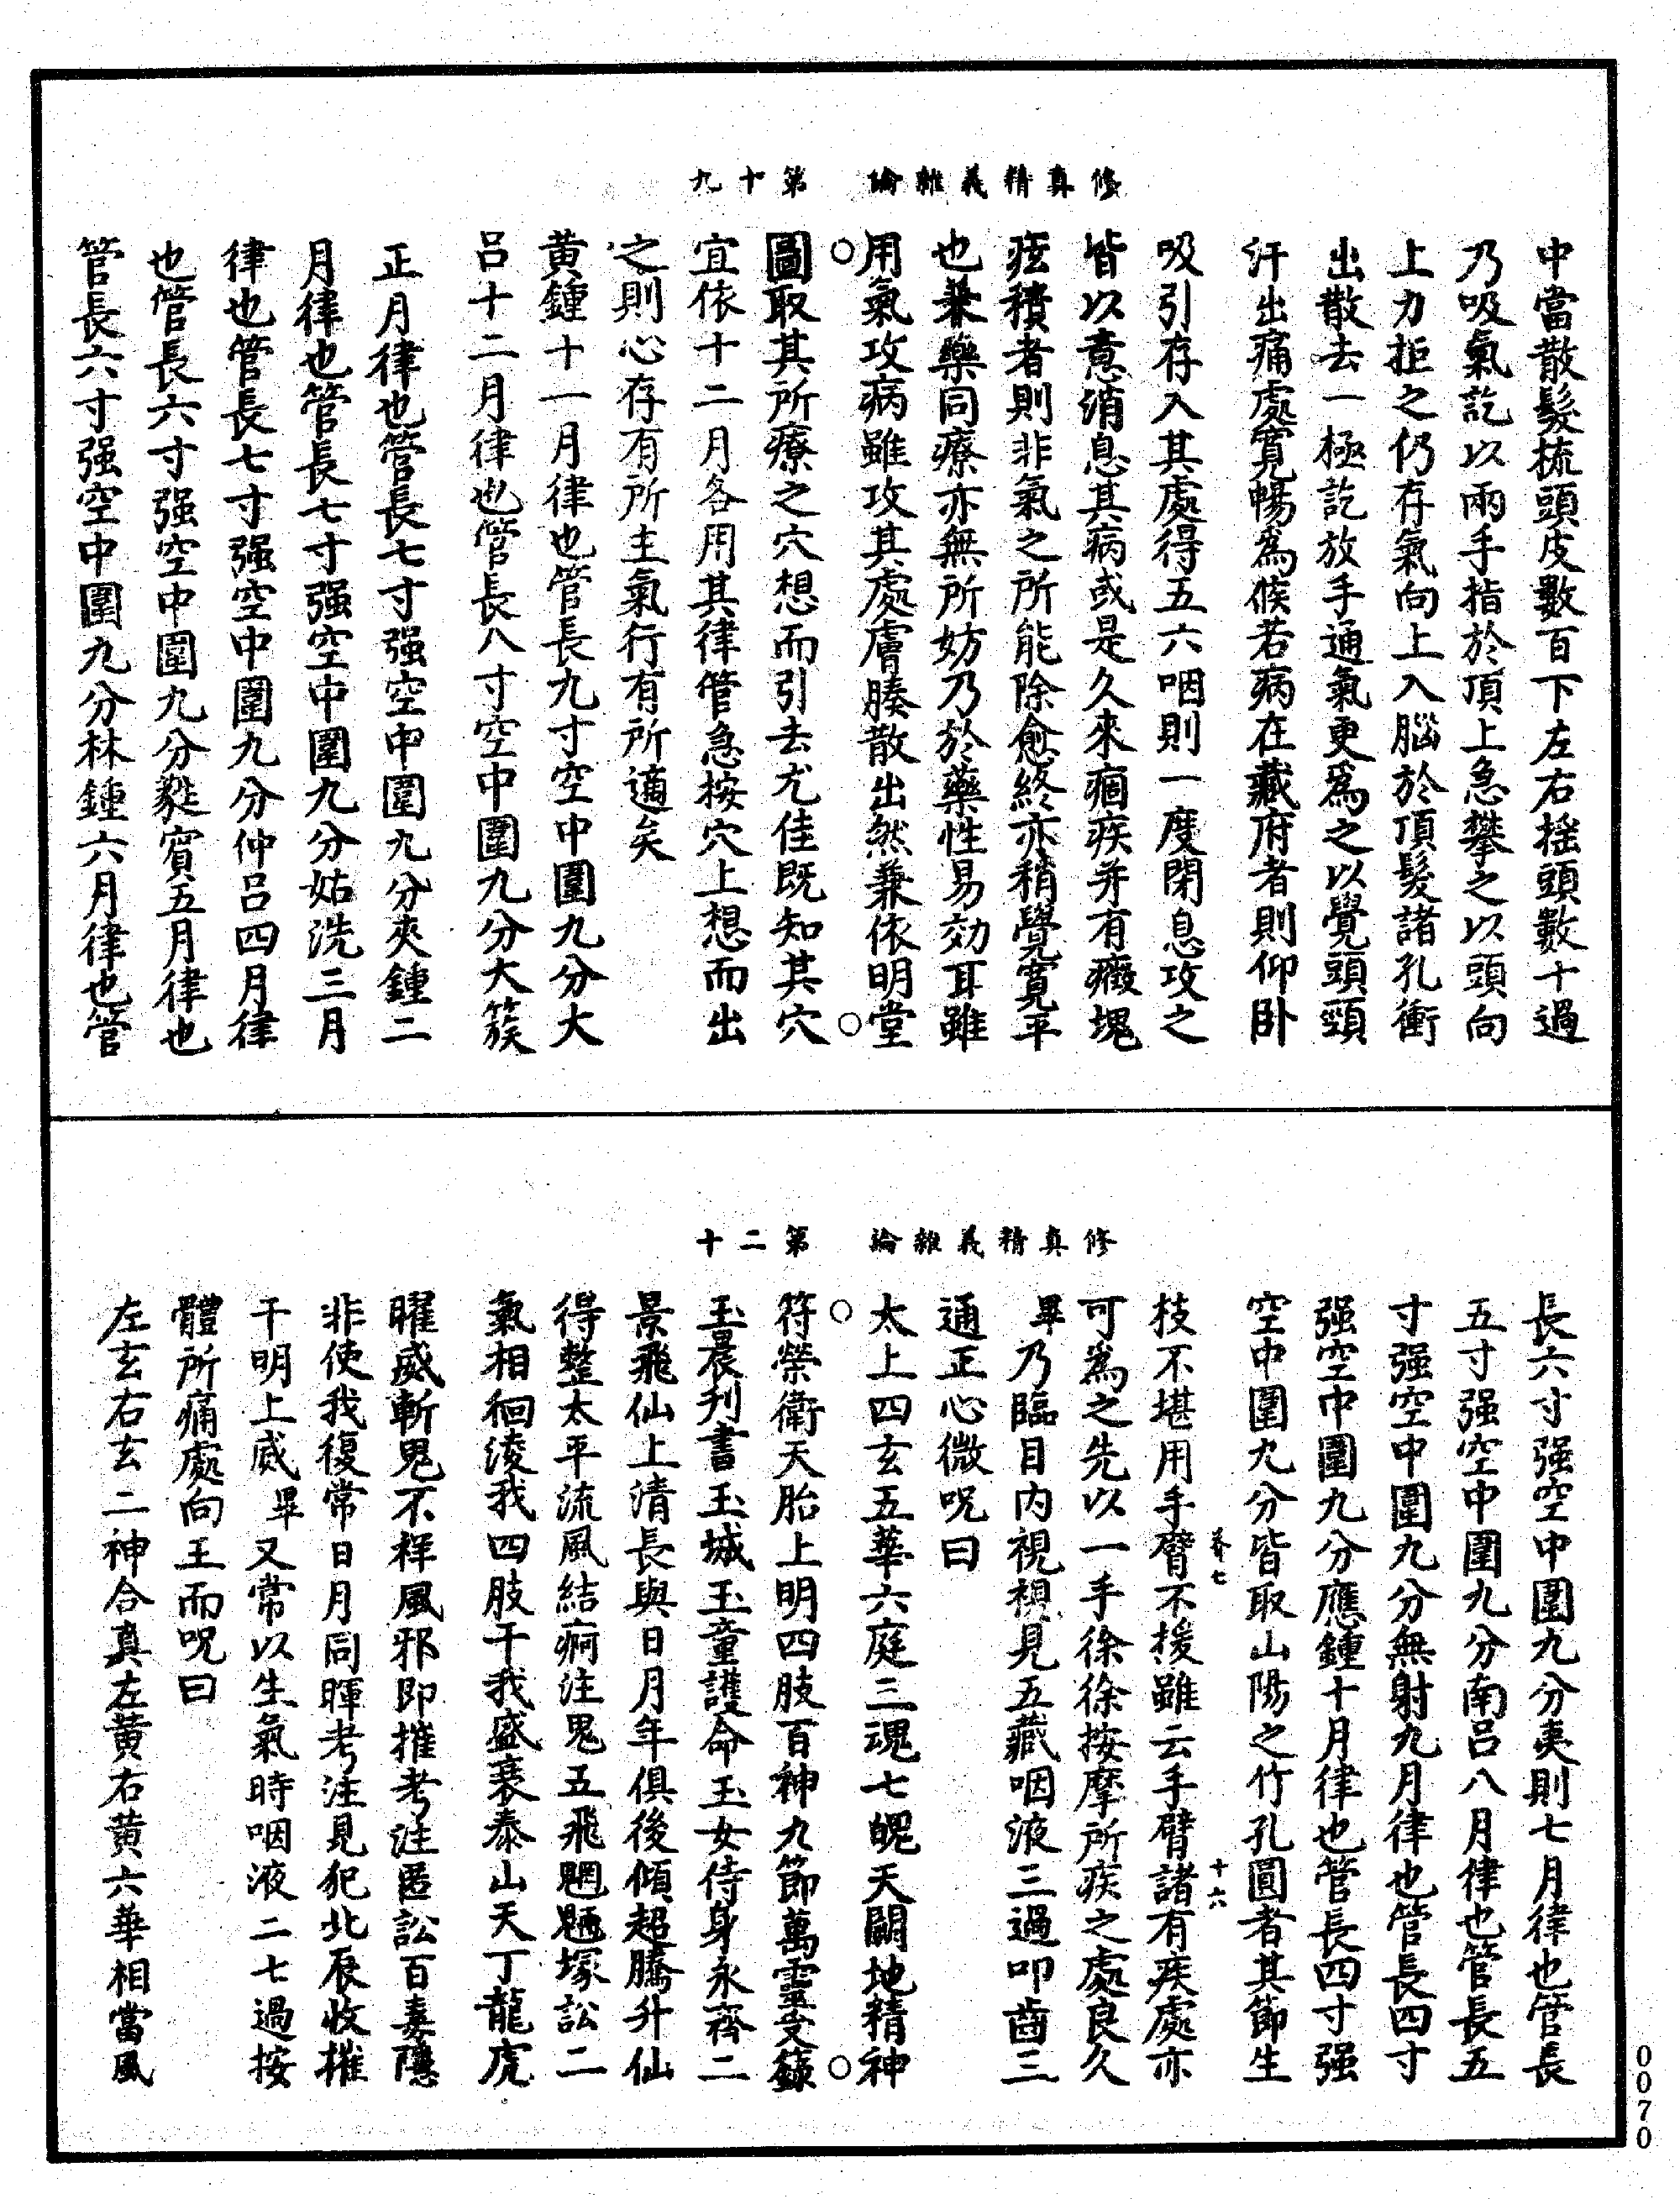 修真精義雜論　第十九
中當散髮梳頭皮數百下左右搖頭數十過
乃吸氣訖以兩手指於頂上急攀之以頭向
上力拒之仍存氣向上入腦於頂髮諸孔衝
出散去一極訖放手通氣更爲之以覺頭頸
汗出痛處寬暢爲候若病在藏府者則仰卧
吸引存入其處得五六咽則一度閉息攻之
皆以意消息其病或是久來痼疾并有癥塊
痃積者則非氣之所能除愈終亦稍覺寬平
也兼藥同療亦無所妨乃於藥性易効耳雖
用氣攻病雖攻其處膚腠散出然兼依明堂
圖取其所療之穴想而引去尤佳既知其穴
宜依十二月各用其律管急按穴上想而出
之則心存有所主氣行有所適矣
黄鍾十一月律也管長九寸空中圍九分大
呂十二月律也管長八寸空中圍九分大簇
正月律也管長七寸强空中圍九分夾鍾二
月律也管長七寸强空中圍九分姑洗三月
律也管長七寸强空中圍九分仲呂四月律
也管長六寸强空中圍九分蕤賓五月律也
管長六寸强空中圍九分林鍾六月律也管
修真精義雜論　第二十
長六寸强空中圍九分夷則七月律也管長
五寸强空中圍九分南呂八月律也管長五
寸强空中圍九分無射九月律也管長四寸
强空中圍九分應鍾十月律也管長四寸强
空中圍九分皆取山陽之竹孔圓者其節生
枝不堪用手臂不援雖云手臂諸有疾處亦
可爲之先以一手徐徐按摩所疾之處良久
畢乃臨目内視視見五藏咽液三過叩齒三
通正心微呪曰
太上四玄五華六庭三魂七魄天關地精神
符榮衛天胎上明四肢百神九節萬靈受籙
玉晨刋書玉城玉童護命玉女侍身永齊二
景飛仙上清長與日月年俱後傾超騰升仙
得整太平流風結痾注鬼五飛魍魎塚訟二
氣相徊淩我四肢干我盛衰泰山天丁龍虎
曜威斬鬼不祥風邪即摧考注匿訟百毒隱
非使我復常日月同暉考注見犯北辰收摧
干明上威畢又常以生氣時咽液二七過按
體所痛處向王而呪曰
左玄右玄二神合真左黄右黄六華相當風
十六
0070